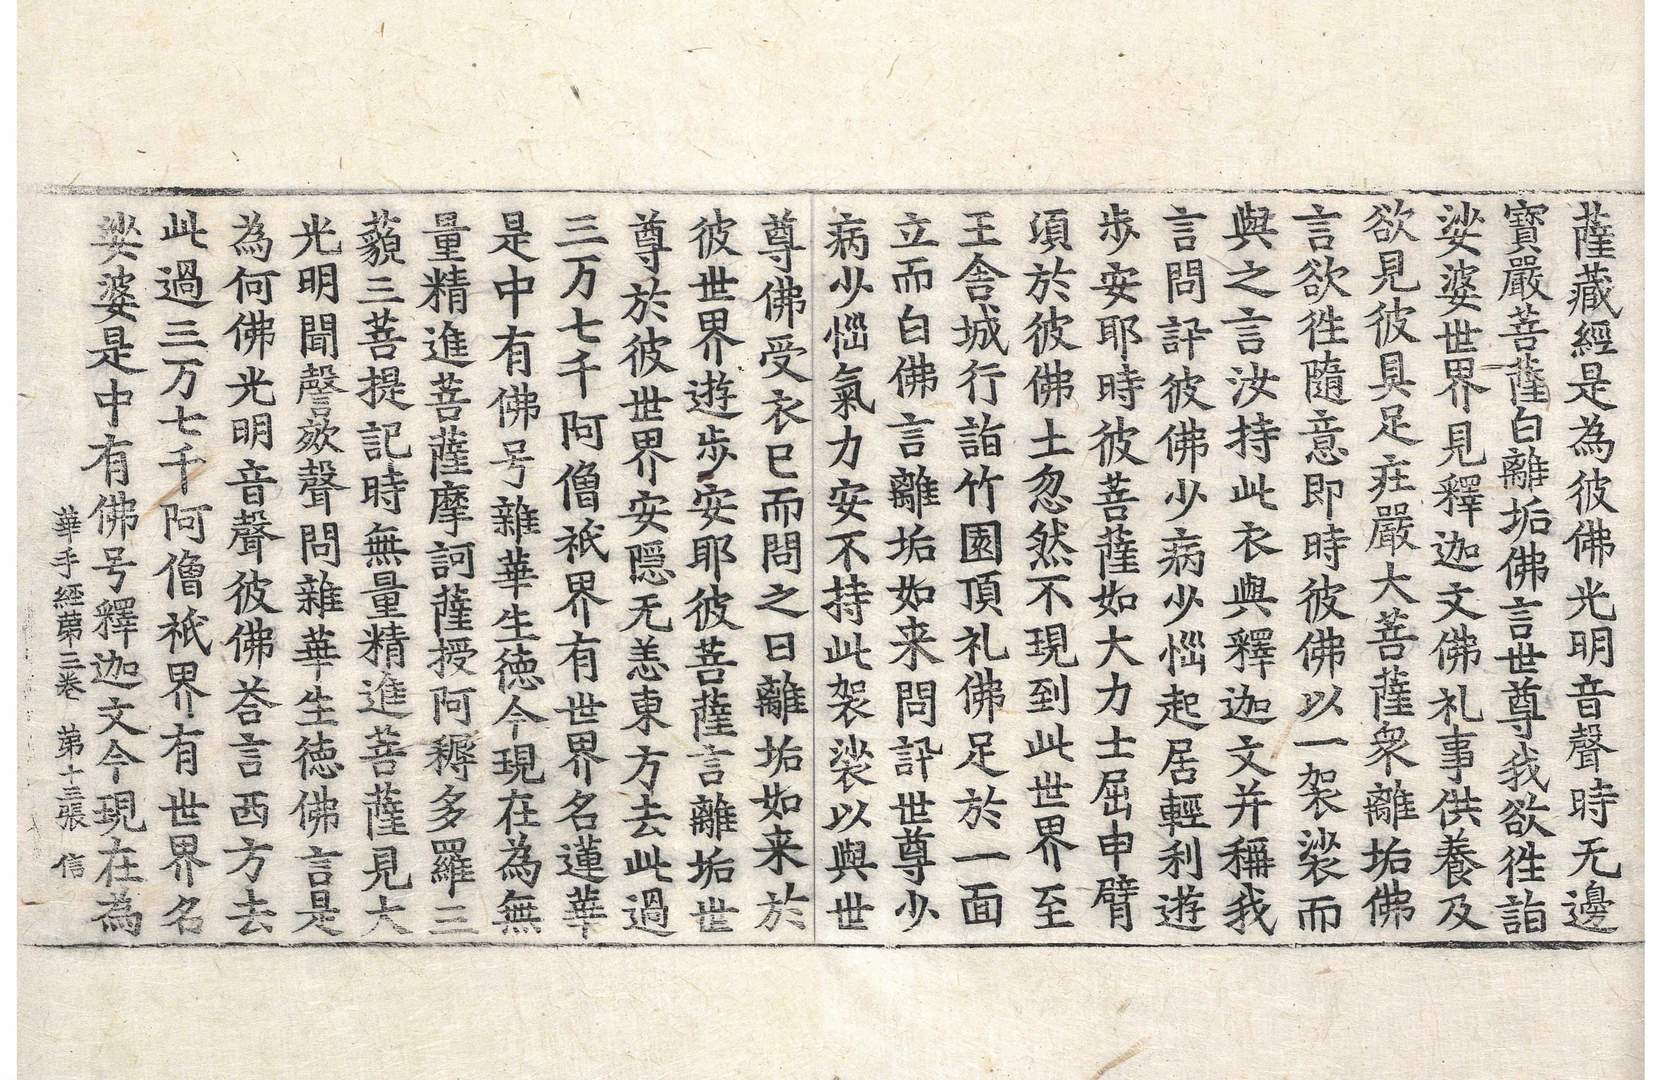 薩藏經是為彼佛光明音聲時无邊
寶嚴菩薩白離垢佛言世尊我欲徃詣
娑婆世界見釋迦文佛礼事供養及
欲見彼具足莊嚴大菩薩衆離垢佛
言欲徃隨意即時彼佛以一袈裟而
與之言汝持此衣與釋迦文并稱我
言問訊彼佛少病少惱起居輕利遊
歩安耶時彼菩薩如大力士屈申臂
頃於彼佛土忽然不現到此世界至
王舍城行詣竹園頂礼佛足於一面
立而白佛言離垢如来問訊世尊少
病少惱氣力安不持此袈裟以與世
尊佛受衣已而問之曰離垢如来於
彼世界遊歩安耶彼菩薩言離垢世
尊於彼世界安隱无恙東方去此過
三万七千阿僧祇界有世界名蓮華
是中有佛号雜華生徳今現在為無
量精進菩薩摩訶薩授阿耨多羅三
藐三菩提記時無量精進菩薩見大
光明聞謦欬聲問雜華生徳佛言是
為何佛光明音聲彼佛荅言西方去
此過三万七千阿僧祇界有世界名
娑婆是中有佛号釋迦文今現在為
華手經第三卷　第十三張　信